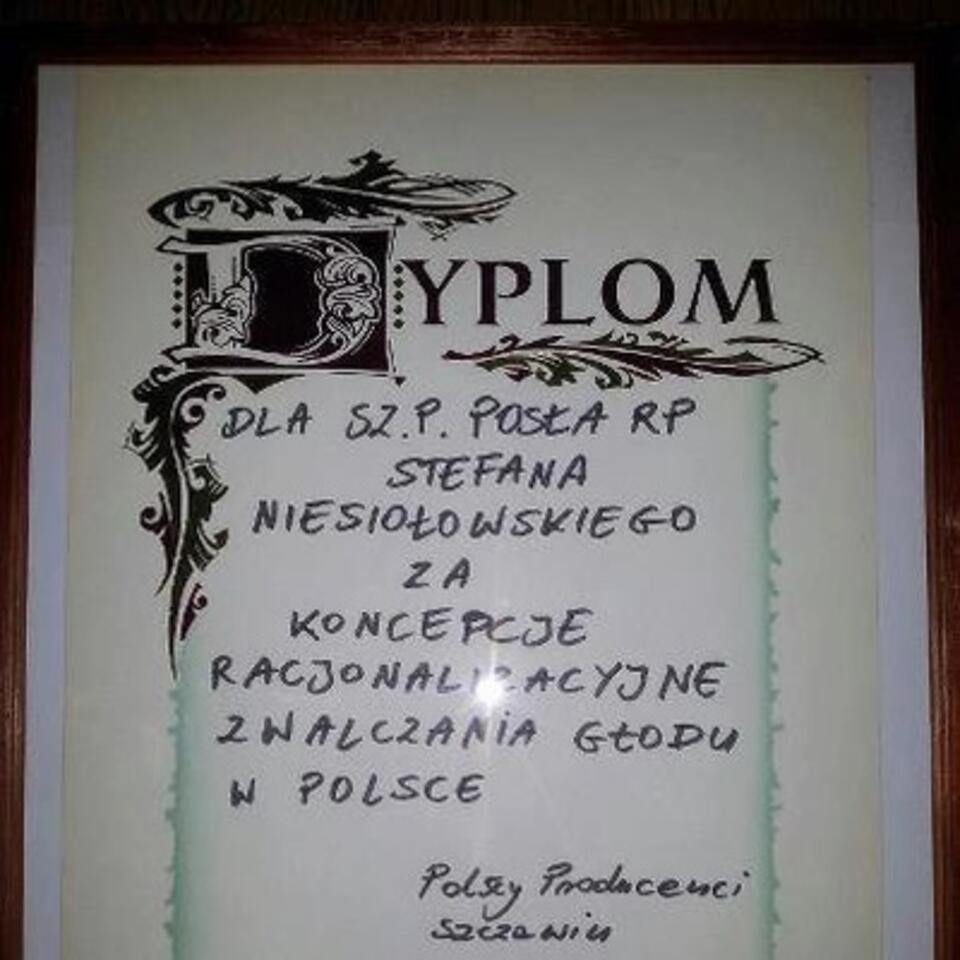 DYPLOM
DLA SZ.P. POSŁA RP
STEFANA
NIESIOŁOWSKIEGO
ZA
KONCEPCJE
RACJONALIZACYJNE
ZWALCZANiA GŁODU
W POLSCE
Polscy Producenci
Szczawiu